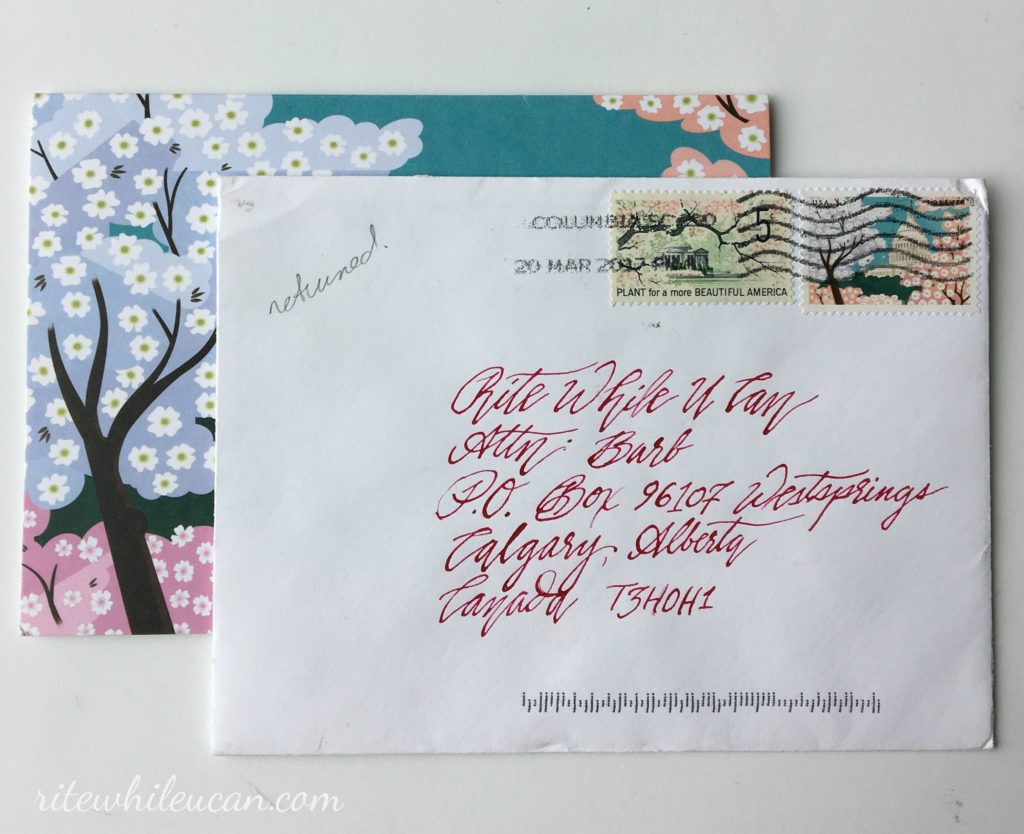 COLUMBIA SC
20 MAR 2017 PM
5
PLANT for a more BEAUTIFUL AMERICA
USA
FOREVER
returned.
Rite While U Can
Attn: Barb
P.O. Box 96107 Westsprings
Calgary, Alberta
Canada T3H0H1
ritewhileucan.com